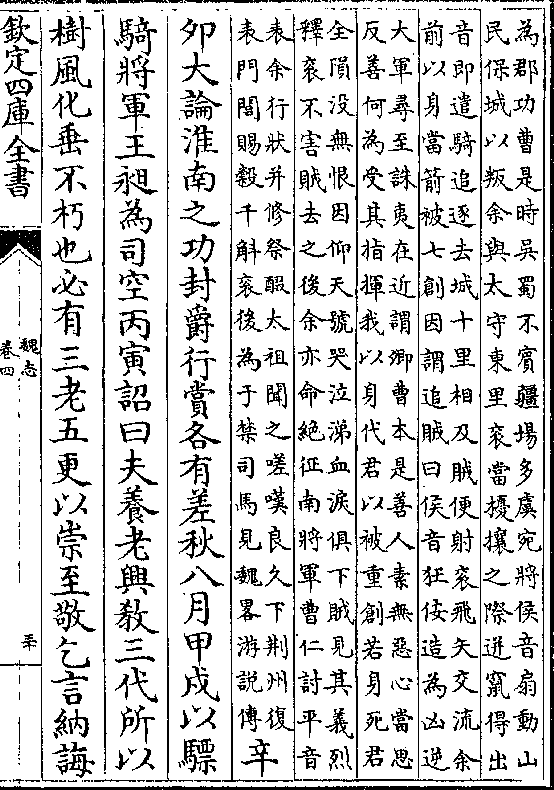 為郡功曹是時吳蜀不賓疆場多虞宛將侯音扇動山
民保城以叛余與太守東里袞當擾攘之際迸竄得出
音即遣騎追逐去城十里相及賊便射袞飛矢交流余
前以身當箭被七創因謂追賊曰侯音狂佞造為凶逆
大軍尋至誅夷在近謂卿曹本是善人素無惡心當思
反善何為受其指揮我以身代君以被重創若身死君
全隕没無恨因仰天號哭泣涕血淚俱下賊見其義烈
釋袞不害賊去之後余亦命絕征南將軍曹仁討平音
表余行狀并修祭醊太祖聞之嗟嘆良久下荆州復
表門閭賜穀千斛袞後為于禁司馬見魏畧游説傳
辛
卯大論淮南之功封爵行賞各有差秋八月甲戍以驃
騎將軍王昶為司空丙寅詔曰夫養老興教三代所以
樹風化垂不朽也必有三老五更以崇至敬乞言納誨
欽定四庫全書
魏志
卷四
三十